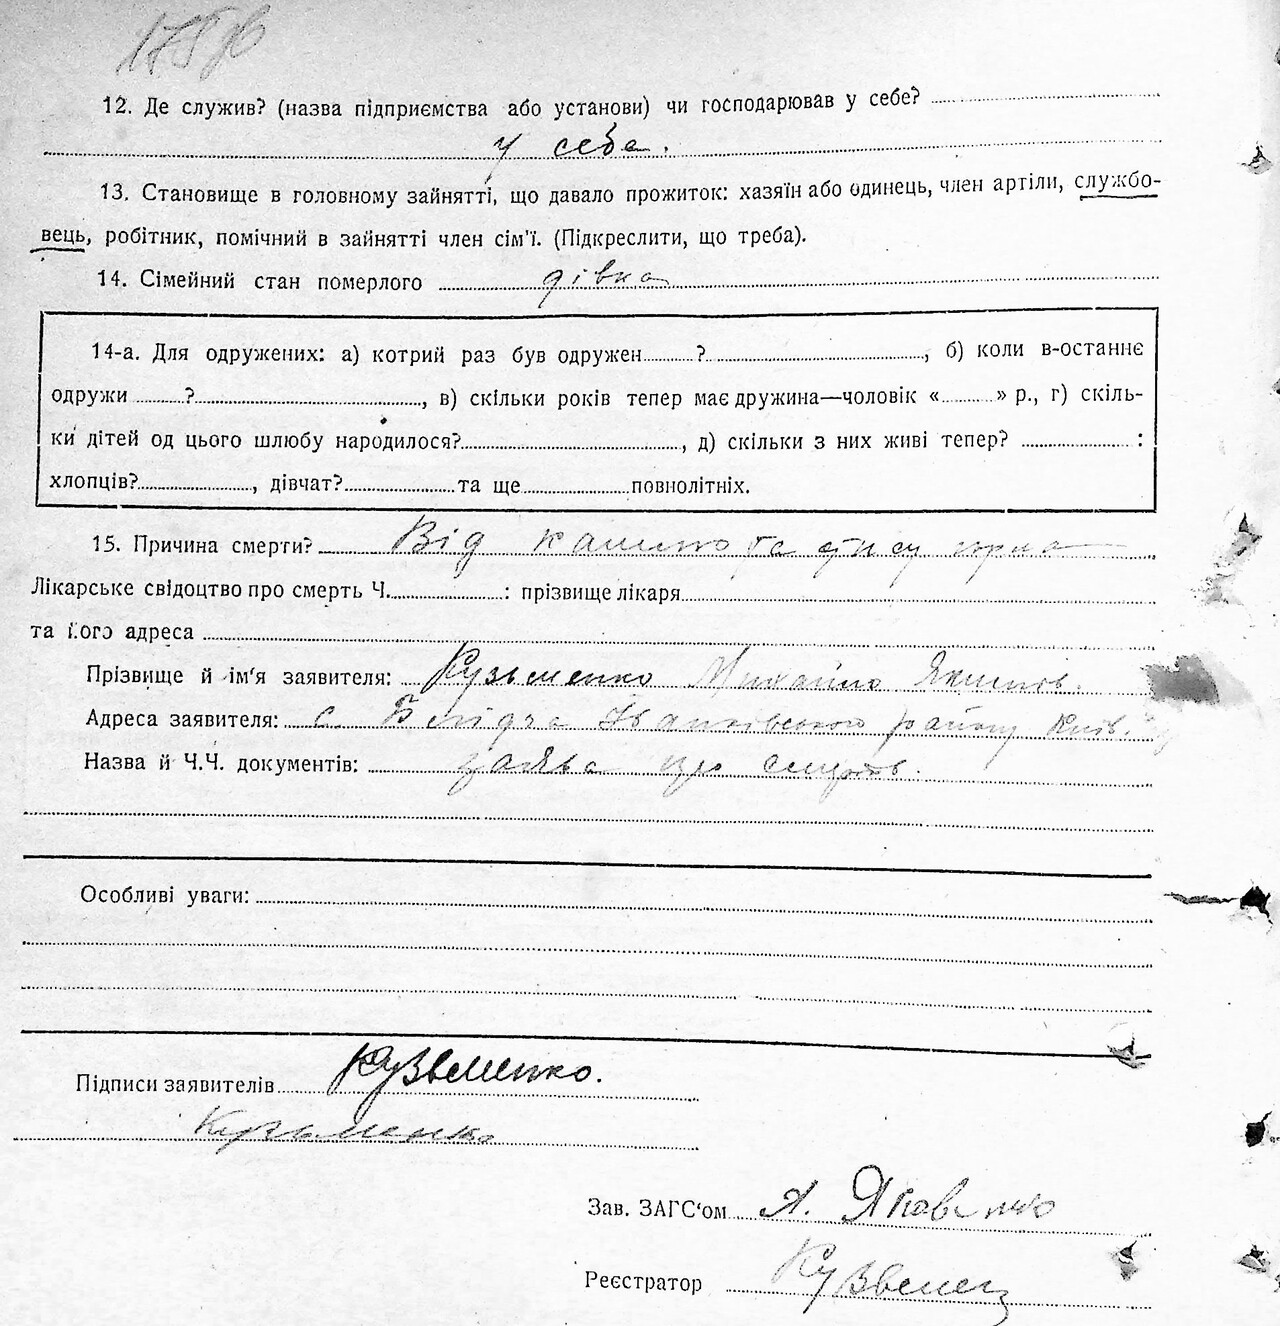 12. Де служив? (назва підприємства або установи) чи господарював у себе?
у себе.
13. Становище в головному зайнятті, що давало прожиток: хазяїн або одинець, член артіли, службо-
вець, робітник, помічний в зайнятті член сім'ї. (Підкреслити, що треба).
14. Сімейний стан померлого дівка
14-а. Для одружених: а) котрий раз був одружен ? , б) коли в-останнє
одружи ? , в) скільки років тепер має дружина—чоловік « » р., г) скіль-
ки дітей од цього шлюбу народилося? , д) скільки з них живі тепер? :
хлопців? , дівчат? та ще повнолітніх.
15. Причина смерти? Від
Лікарське свідоцтво про смерть Ч. : прізвище лікаря
та його адреса
Прізвище й ім'я заявителя: Кузьменко Михайло
Адреса заявителя: с. Іванківського району Київ.
Назва й Ч.Ч. документів: заява про смерть.
Особливі уваги:
Підписи заявителів Кузьменко.
Кузьменко
Зав. ЗАГС'ом Я. Яковенко
Реєстратор